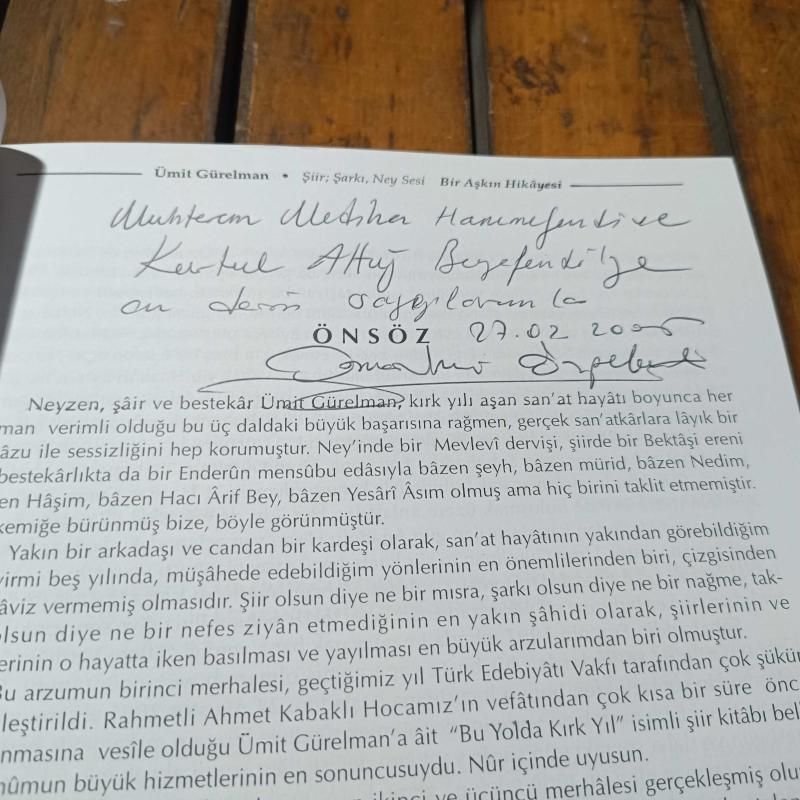 Ümit Gürelman • Şiir; Şarkı, Ney Sesi Bir Aşkın Hikâyesi
Muhterem Mediha Hanımefendi ve
Kurtul Altuğ Beyefendi'ye
en derin saygılarımla
ÖNSÖZ 27.02 2005
Neyzen, şâir ve bestekâr Ümit Gürelman, kırk yılı aşan san'at hayâtı boyunca her
man verimli olduğu bu üç daldaki büyük başarısına rağmen, gerçek san'atkârlara lâyık bir
âzu ile sessizliğini hep korumuştur. Ney'inde bir Mevlevî dervişi, şiirde bir Bektâşi ereni
bestekârlıkta da bir Enderûn mensûbu edâsıyla bâzen şeyh, bâzen mürid, bâzen Nedim,
en Hâşim, bâzen Hacı Ârif Bey, bâzen Yesârî Âsım olmuş ama hiç birini taklit etmemiştir.
kemiğe bürünmüş bize, böyle görünmüştür.
Yakın bir arkadaşı ve candan bir kardeşi olarak, san'at hayâtının yakından görebildiğim
yirmi beş yılında, müşâhede edebildiğim yönlerinin en önemlilerinden biri, çizgisinden
âviz vermemiş olmasıdır. Şiir olsun diye ne bir mısra, şarkı olsun diye ne bir nağme, tak-
olsun diye ne bir nefes ziyân etmediğinin en yakın şâhidi olarak, şiirlerinin ve
erinin o hayatta iken basılması ve yayılması en büyük arzularımdan biri olmuştur.
Bu arzumun birinci merhalesi, geçtiğimiz yıl Türk Edebiyâtı Vakfı tarafından çok şükür
leştirildi. Rahmetli Ahmet Kabaklı Hocamız'ın vefâtından çok kısa bir süre önc
nmasına vesîle olduğu Ümit Gürelman'a âit "Bu Yolda Kırk Yıl" isimli şiir kitâbı bel
hûmun büyük hizmetlerinin en sonuncusuydu. Nûr içinde uyusun.
ikinci ve üçüncü merhâlesi gerçekleşmiş olu